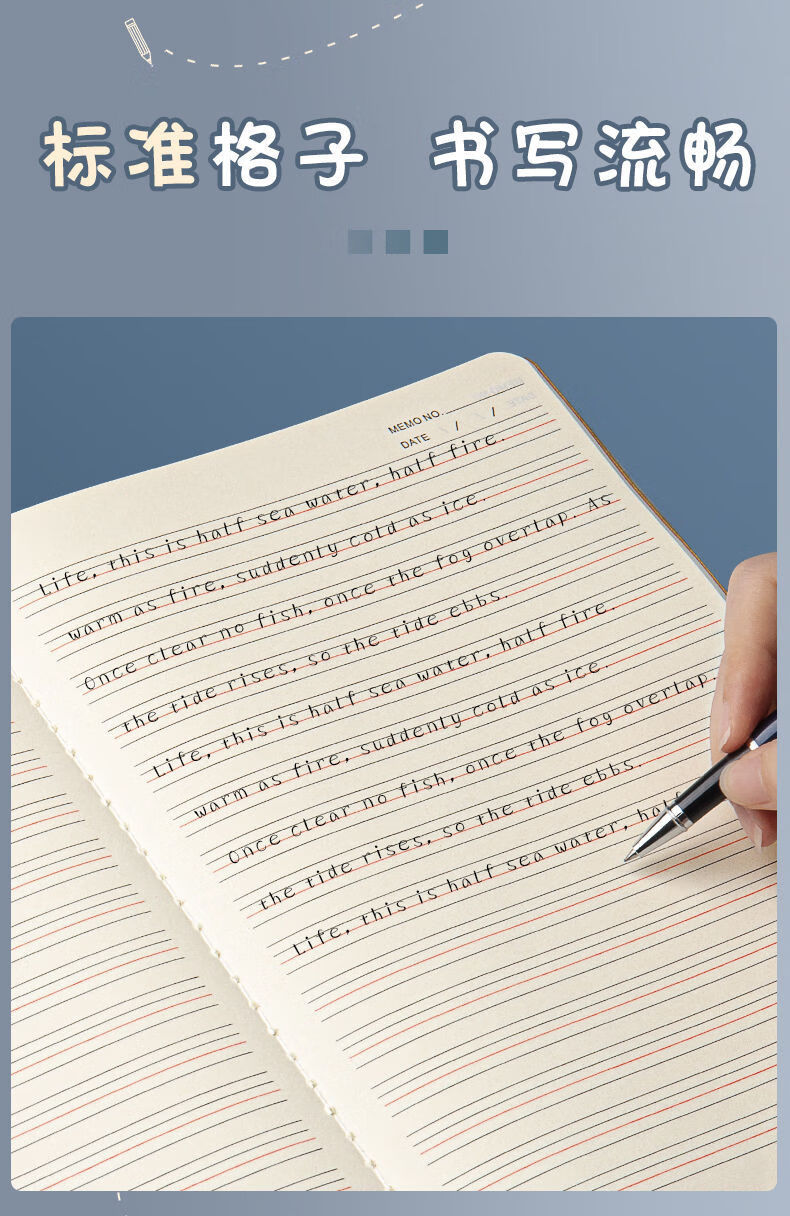 标准格子 书写流畅
MEMO NO.
DATE / /
Life, this is half sea water, half fire.
warm as fire, suddenly cold as ice.
Once clear no fish, once the fog overlap. As
the tide rises, so the tide ebbs.
Life, this is half sea water, half fire.
warm as fire, suddenly cold as ice.
Once clear no fish, once the fog overlap
the tide rises, so the tide ebbs.
Life, this is half sea water, half